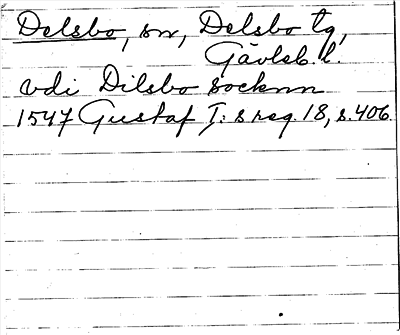 Delsbo, sn, Delsbo tg,
Gävleb. l.
vdi Dilsbo socknn
1547 Gustaf I: s reg. 18, s. 406.